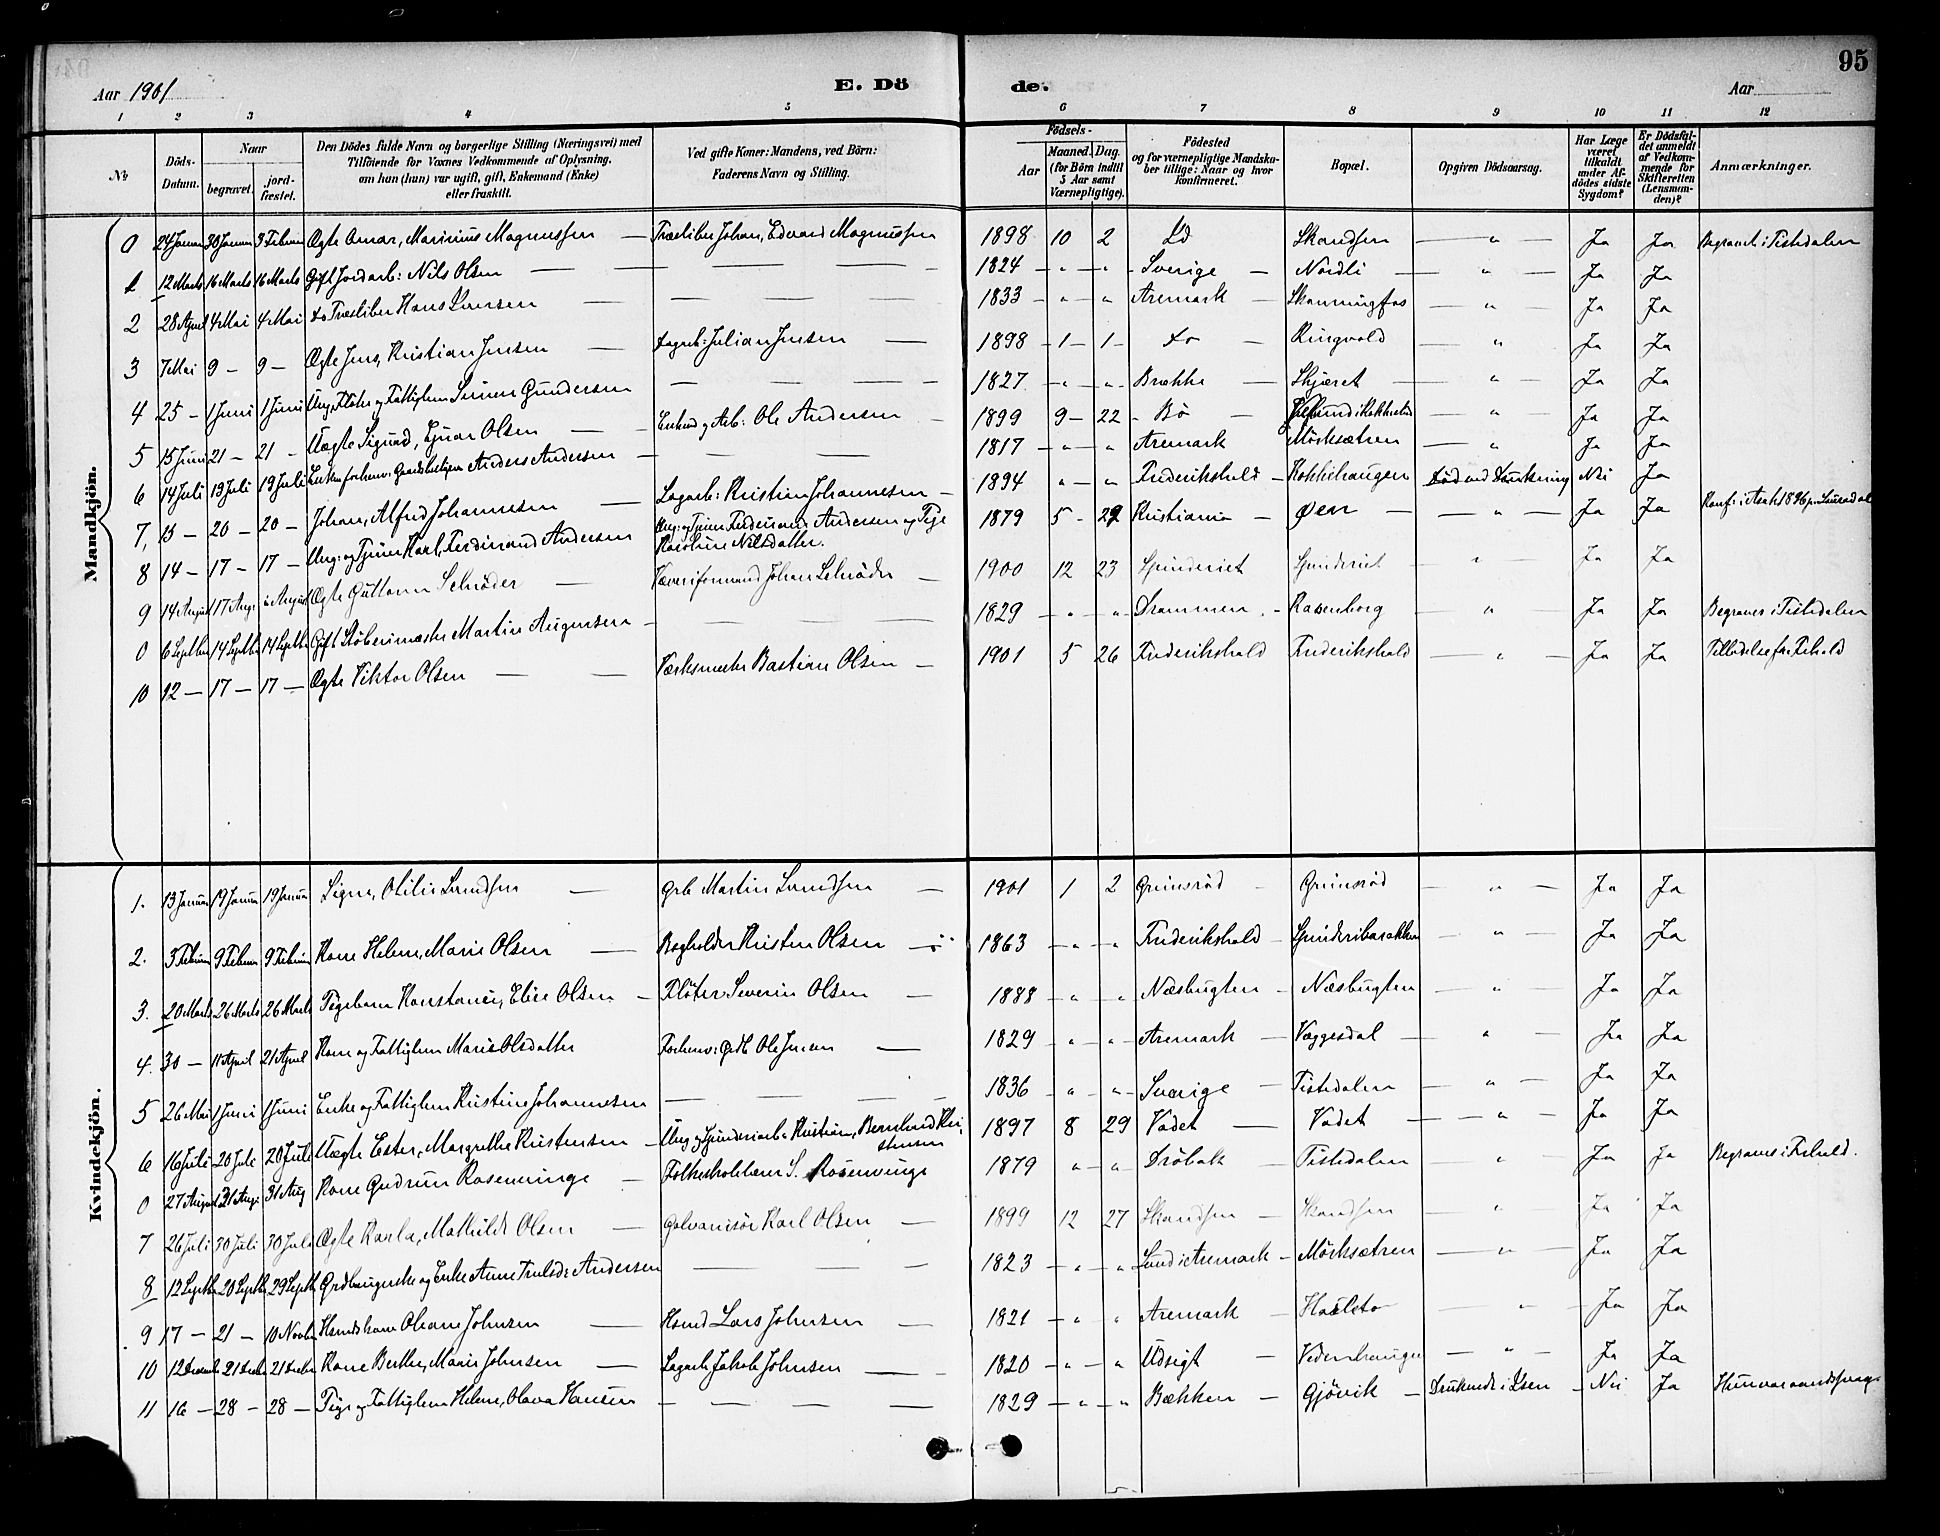 95
Aar 1901
E. Döde.
Aar
1 2 3 4 5 6 7 8 9 10 11 12
No
Döds-Datum.
Naar begravet. jordfæstet.
Den Dödes fulde Navn og borgerlige Stilling (Næringsvei) med Tilföiende for Voxnes Vedkommende af Oplysning, om han (hun) var ugift, gift, Enkemand (Enke) eller fraskilt.
Ved gifte Koner: Mandens, ved Börn: Faderens Navn og Stilling.
Födsels- Aar Maaned. Dag. (for Börn indtil 5 Aar samt Værnepligtige).
Födested og for værnepligtige Mandskaber tillige: Naar og hvor konfirmeret.
Bopæl.
Opgiven Dödsaarsag.
Har Læge været tilkaldt under Afdödes sidste Sygdom?
Er Dödsfaldet anmeldt af Vedkommende for Skifteretten (Lensmanden)?
Anmærkninger.
Mandkjön.
0 24 Januar 30 Januar 3 Februar Ægte Omar, Marinius Magnussen — Træsliber Johan, Edvard Magnussen 1898 10 2 Id Skandsen — „ — Ja Ja Begravet i Tistedalen
1 12 Marts 16 Marts 16 Marts Gift Jordarb: Nils Olsen — 1824 „ „ Sverige — Nordli — „ — Ja Ja
2 28 April 4 Mai 4 Mai do Træsliber Hans Larsen — 1833 „ „ Aremark — Skonningfos — „ — Ja Ja
3 7 Mai 9 — 9 — Ægte Jens, Kristian Jensen — Dagarb: Julian Jensen — 1898 1 1 do — Ringvold — „ — Ja Ja
4 25 — 1 Juni 1 Juni Ung. Fløter og Fattiglem Simen Gundersen — 1827 „ „ Brække — Skjæret — „ — Ja Ja
5 15 Juni 21 — 21 — Uægte Sigurd, Ejnar Olsen — Enkem og Arb: Ole Andersen — 1899 9 22 Bö — — „ — Ja Ja
6 14 Juli 19 Juli 19 Juli Enkem forhenv: Gaardbruger Anders Andersen — 1817 „ „ Aremark Mörksætren — „ Ja Ja
7, 13 — 20 — 20 — Johan, Alfred Johannesen — Dagarb: Kristian Johannesen — 1894 „ „ Frederikshald — Kokkehaugen Död ved Drukning Nei Ja
8 14 — 17 — 17 — Ung: og Tjener Karl, Ferdinand Andersen Ung: og Tjener Ferdinand Andersen og Pige Karoline Nilsdatter. 1879 5 29 Kristiania — Øen — „ — Ja Ja
9 14 August 17 Aug. Ægte Guttorm Schröder — Væveriformand Johan Schröder — 1900 12 23 Spinderiet Spinderiet — „ — Ja Ja
0 6 Septbr 14 Septbr 14 Septbr Gift Støberimester Martin Augensen — 1829 „ „ Drammen — Rosenborg — „ — Ja Ja Begraves i Tistedalen
10 12 — 17 — 17 — Ægte Viktor Olsen — Værksmester Bastian Olsen — 1901 5 26 Frederikshald Frederikshald — „ — Ja Ja
Kvindekjön.
1. 13 Januar 19 Januar 19 Januar Signe, Otilie Svendsen — Grb Martin Svendsen — 1901 1 2 Grimsröd — Grimsröd — „ — Ja Ja
2. 3 Februar 9 Februar 9 Februar Kone Helene, Marie Olsen — Bogholder Kristen Olsen — 1863 „ „ Frederikshald — Spinderibarakken — „ — Ja Ja
3. 20 Marts 26 Marts 26 Marts Pigebarn Konstance, Elise Olsen — Flöter Severin Olsen — 1888 „ „ Næsbugten — Næsbugten — „ — Ja Ja
4. 30 — 11 April 21 April Kone og Fattiglem Marie Olsdatter Forhenv: Grdb. Ole Jensen — 1829 „ „ Aremark — Vaggesdal — „ — Ja Ja
5 26 Mai 1 Juni 1 Juni Enke og Fattiglem Kristine Johannesen — 1836 „ „ Sverige — Tistedalen — „ — Ja Ja
6 16 Juli 20 Juli 20 Juli Uægte Ester, Margrethe Kristensen — Ung og Spinderiarb: Kristian, Bernhard Kristensen 1897 8 29 Vadet — Vadet — „ — Ja Ja
0 27 August 31 Aug. 31 Aug Kone Gudrun Rosenvinge — Folkeskolelærer S. Rosenvinge 1879 „ „ Dröbak — Tistedalen „ Ja Ja Begraves i Fr.hald.
7 26 Juli 30 Juli 30 Juli Ægte Karla, Mathilde Olsen — Galvanisör Karl Olsen — 1899 12 27 Skandsen — Skandsen — „ — Ja Ja
8 12 Septbr 20 Septbr 29 Septbr Grdbrugerske og Enke Anne Trulsd: Andersen — 1823 „ „ Sand i Aremark — Mörksætren — „ — Ja Ja
9 17 — 21 — 10 Novbr Hsmdskone Oleane Johnsen — Hsmd Lars Johnsen — 1821 „ „ Aremark — — „ — Ja Ja
10 12 Decembr 21 Decbr 21 Decbr Kone Berthe, Marie Johnsen — Dagarb Jakob Johnsen — 1820 „ „ Udsigt — — „ — Ja Ja
11 16 — 28 — 28 — Pige og Fattiglem Helene, Olava Hansen — 1829 „ „ Bækken — Gjövik — Druknede i Elven — Nei Ja Hun var aandssvag